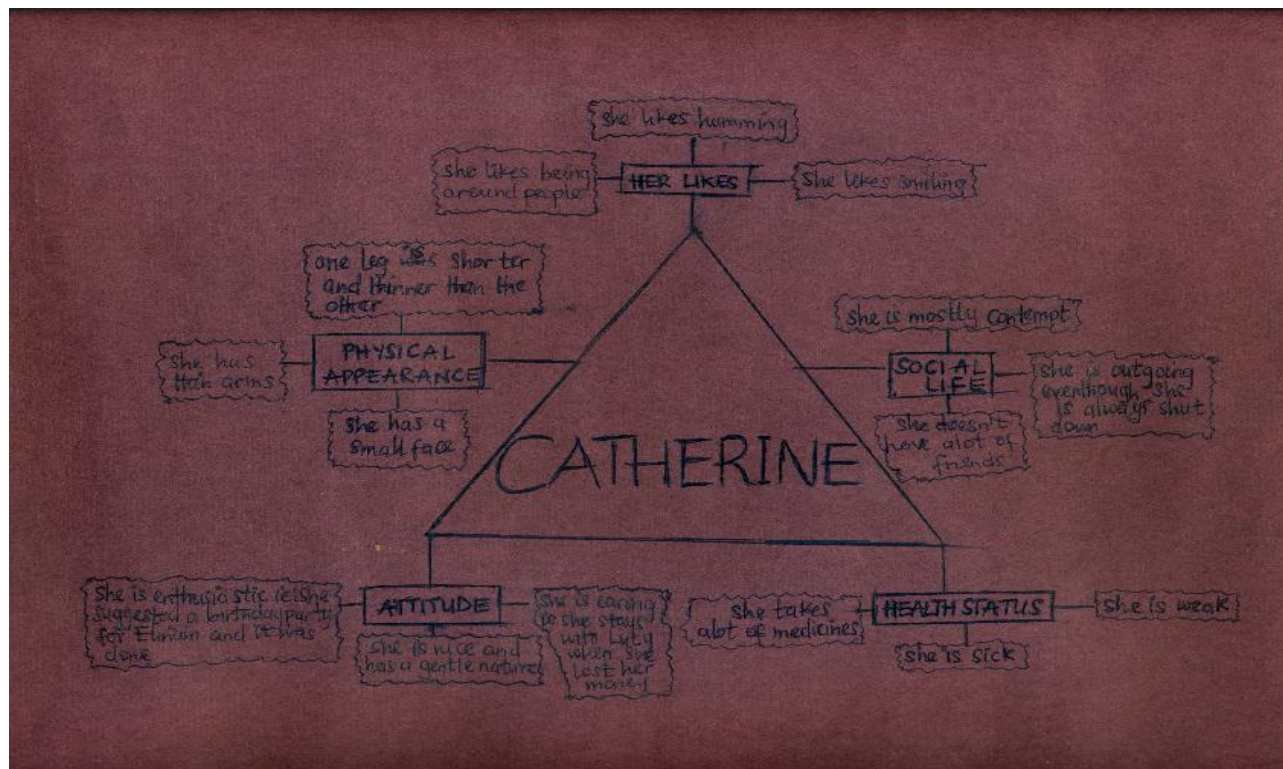 she likes humming
she likes being
around people
HER LIKES
she likes smiling
one leg is shorter
and thinner than the
other
PHYSICAL
APPEARANCE
she has
thin arms
she has a
small face
she is mostly contempt
SOCIAL
LIFE
she is outgoing
eventhough she
is always shut
down
she doesn't
have alot of
friends
CATHERINE
She is enthusiastic ie she
suggested a birthday party
for and it was
done
ATTITUDE
she is nice and
has a gentle nature
she is caring
ie she stays
with Lyty
when she
lost her
money
she takes
alot of medicines
HEALTH STATUS
she is weak
she is sick